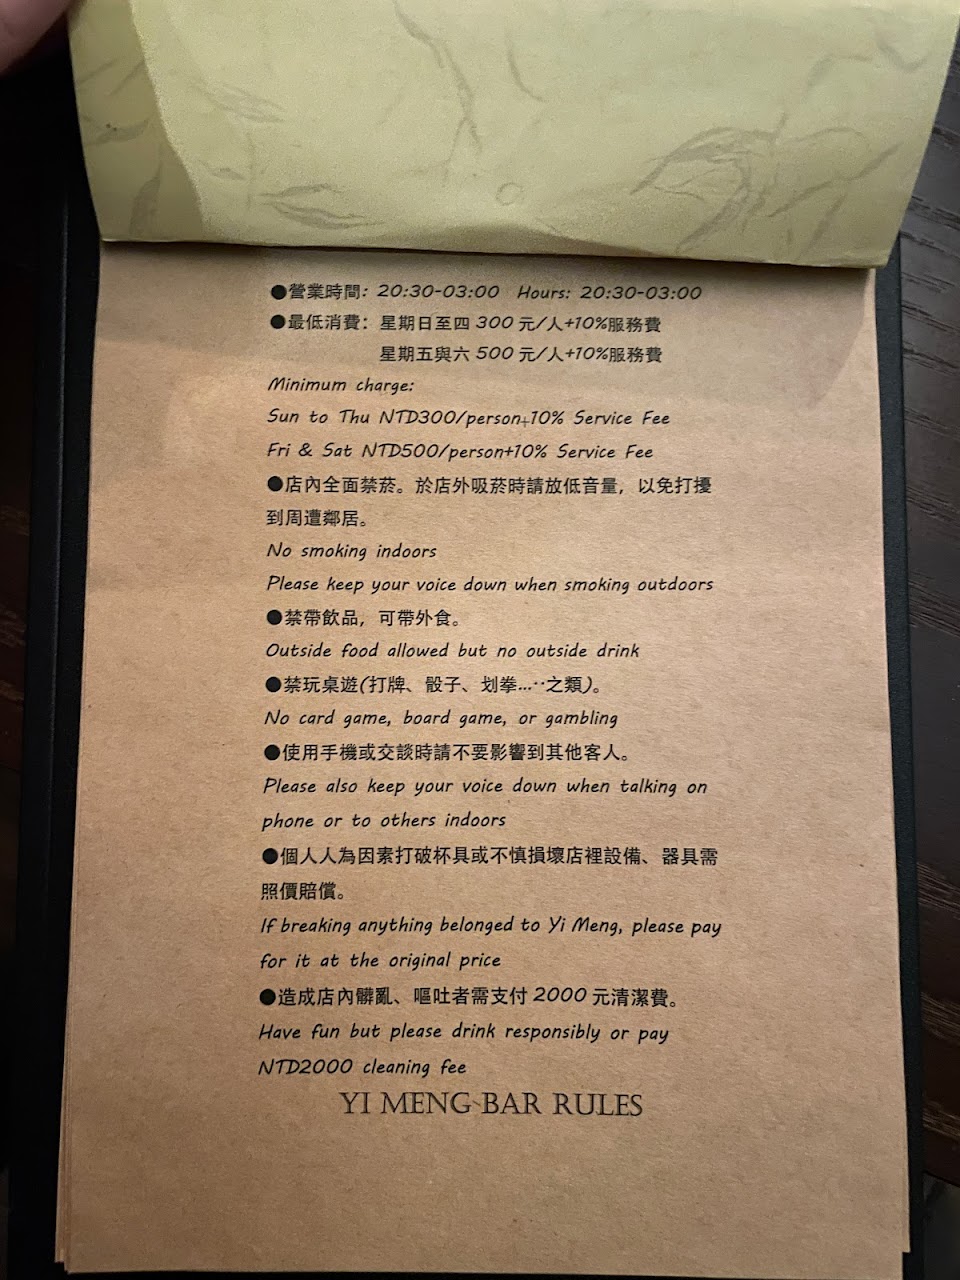 ●營業時間: 20:30-03:00 Hours: 20:30-03:00
●最低消費：星期日至四 300 元/人+10%服務費
星期五與六 500 元/人+10%服務費
Minimum charge:
Sun to Thu NTD300/person+10% Service Fee
Fri & Sat NTD500/person+10% Service Fee
●店內全面禁菸。於店外吸菸時請放低音量，以免打擾
到周遭鄰居。
No smoking indoors
Please keep your voice down when smoking outdoors
●禁帶飲品，可帶外食。
Outside food allowed but no outside drink
●禁玩桌遊(打牌、骰子、划拳…‥之類)。
No card game, board game, or gambling
●使用手機或交談時請不要影響到其他客人。
Please also keep your voice down when talking on
phone or to others indoors
●個人人為因素打破杯具或不慎損壞店裡設備、器具需
照價賠償。
If breaking anything belonged to Yi Meng, please pay
for it at the original price
●造成店內髒亂、嘔吐者需支付 2000 元清潔費。
Have fun but please drink responsibly or pay
NTD2000 cleaning fee
YI MENG BAR RULES